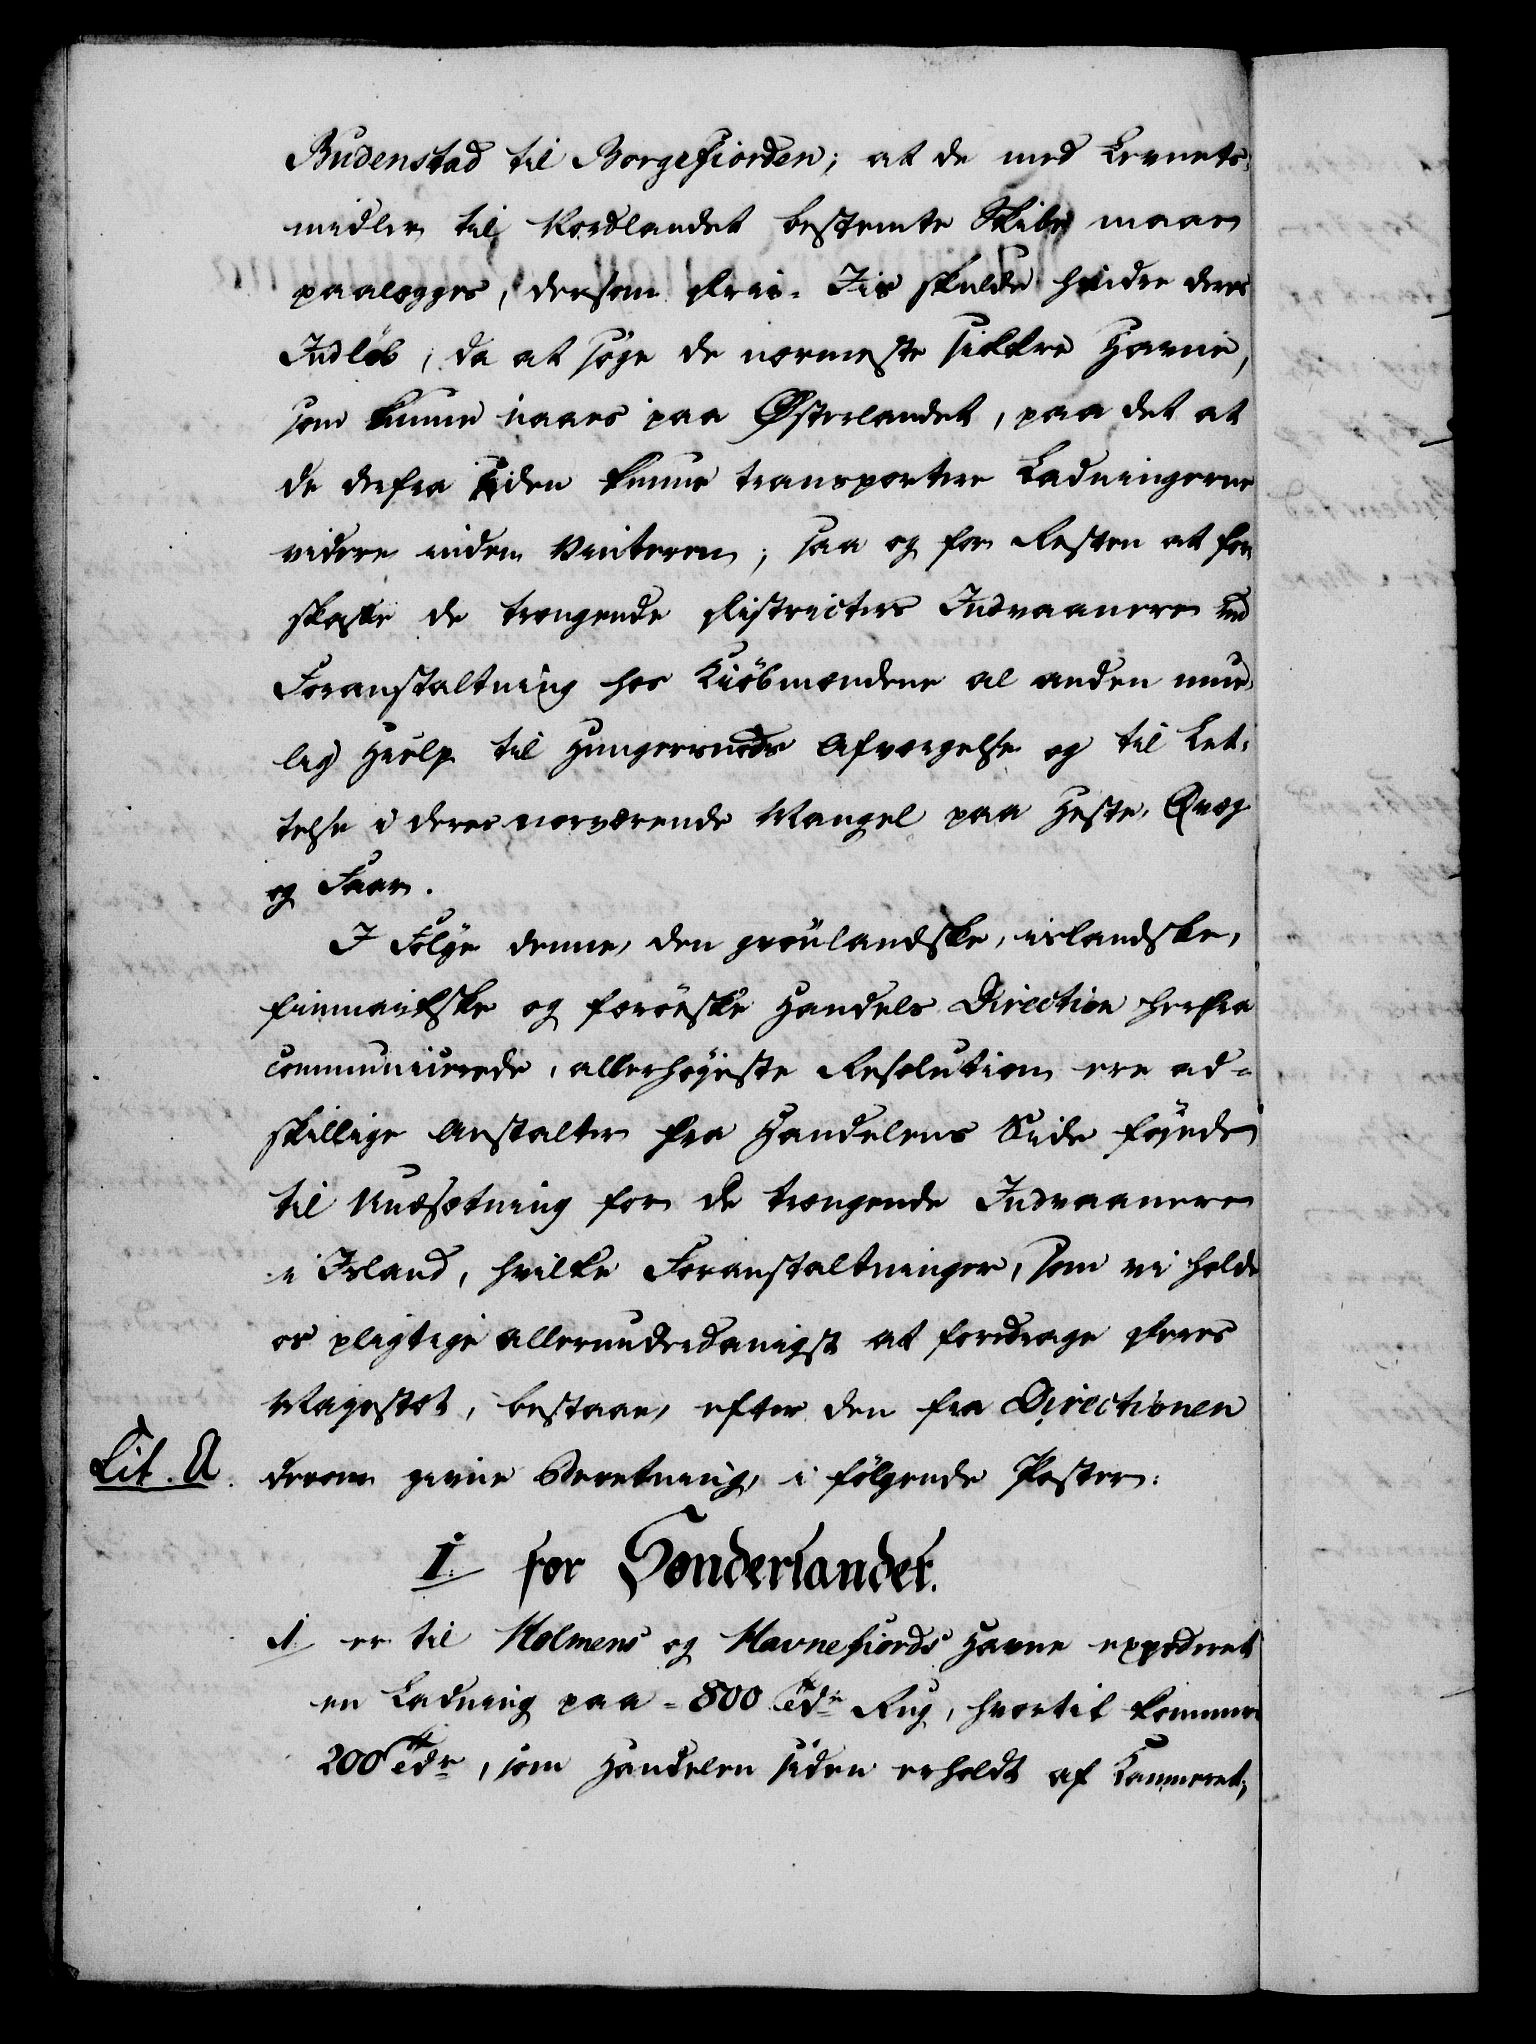 Budenstad til Borgefiorden; at de med Levnets-
midler til Nordlandet bestemte Skibe maae
paalægges, dersom Driv-Iis skulde hindre deres
Indløb, da at søge de nærmeste sikkre Havne,
som kunne naaes paa Østerlandet, paa det at
de derfra siden kunne transportere Ladningerne
videre inden Vinteren; saa og for Resten at for-
skaffe de trængende Districters Indvaanere ved
Foranstaltning hos Kiöbmændene al anden mue-
lig Hielp til Hungersnöds Afværgelse og til Let-
telse i deres nærværende Mangel paa Heste, Qvæg
og Faar.
I Fölge denne, den grönlandske, islandske,
finmarkske og færöeske Handels Direction herfra
communicerede, allerhöyeste Resolution ere ad-
skillige Anstalter fra Handelens Side föyede
til Undsætning for de trængende Indvaanere
i Island, hvilke Foranstaltninger, som vi holde
os pligtige allerunderdanigst at foredrage Deres
Majestæt, bestaae, efter den fra Directionen
Lit. A. derom givne Beretning, i fölgende Poster:
I. for Sønderlandet.
1. er til Holmens og Havnefiords Havne expederet
en Ladning paa 800 Tdr Rug, hvortil kommer
200 Tdr, som Handelen siden erholdt af Cammeret,